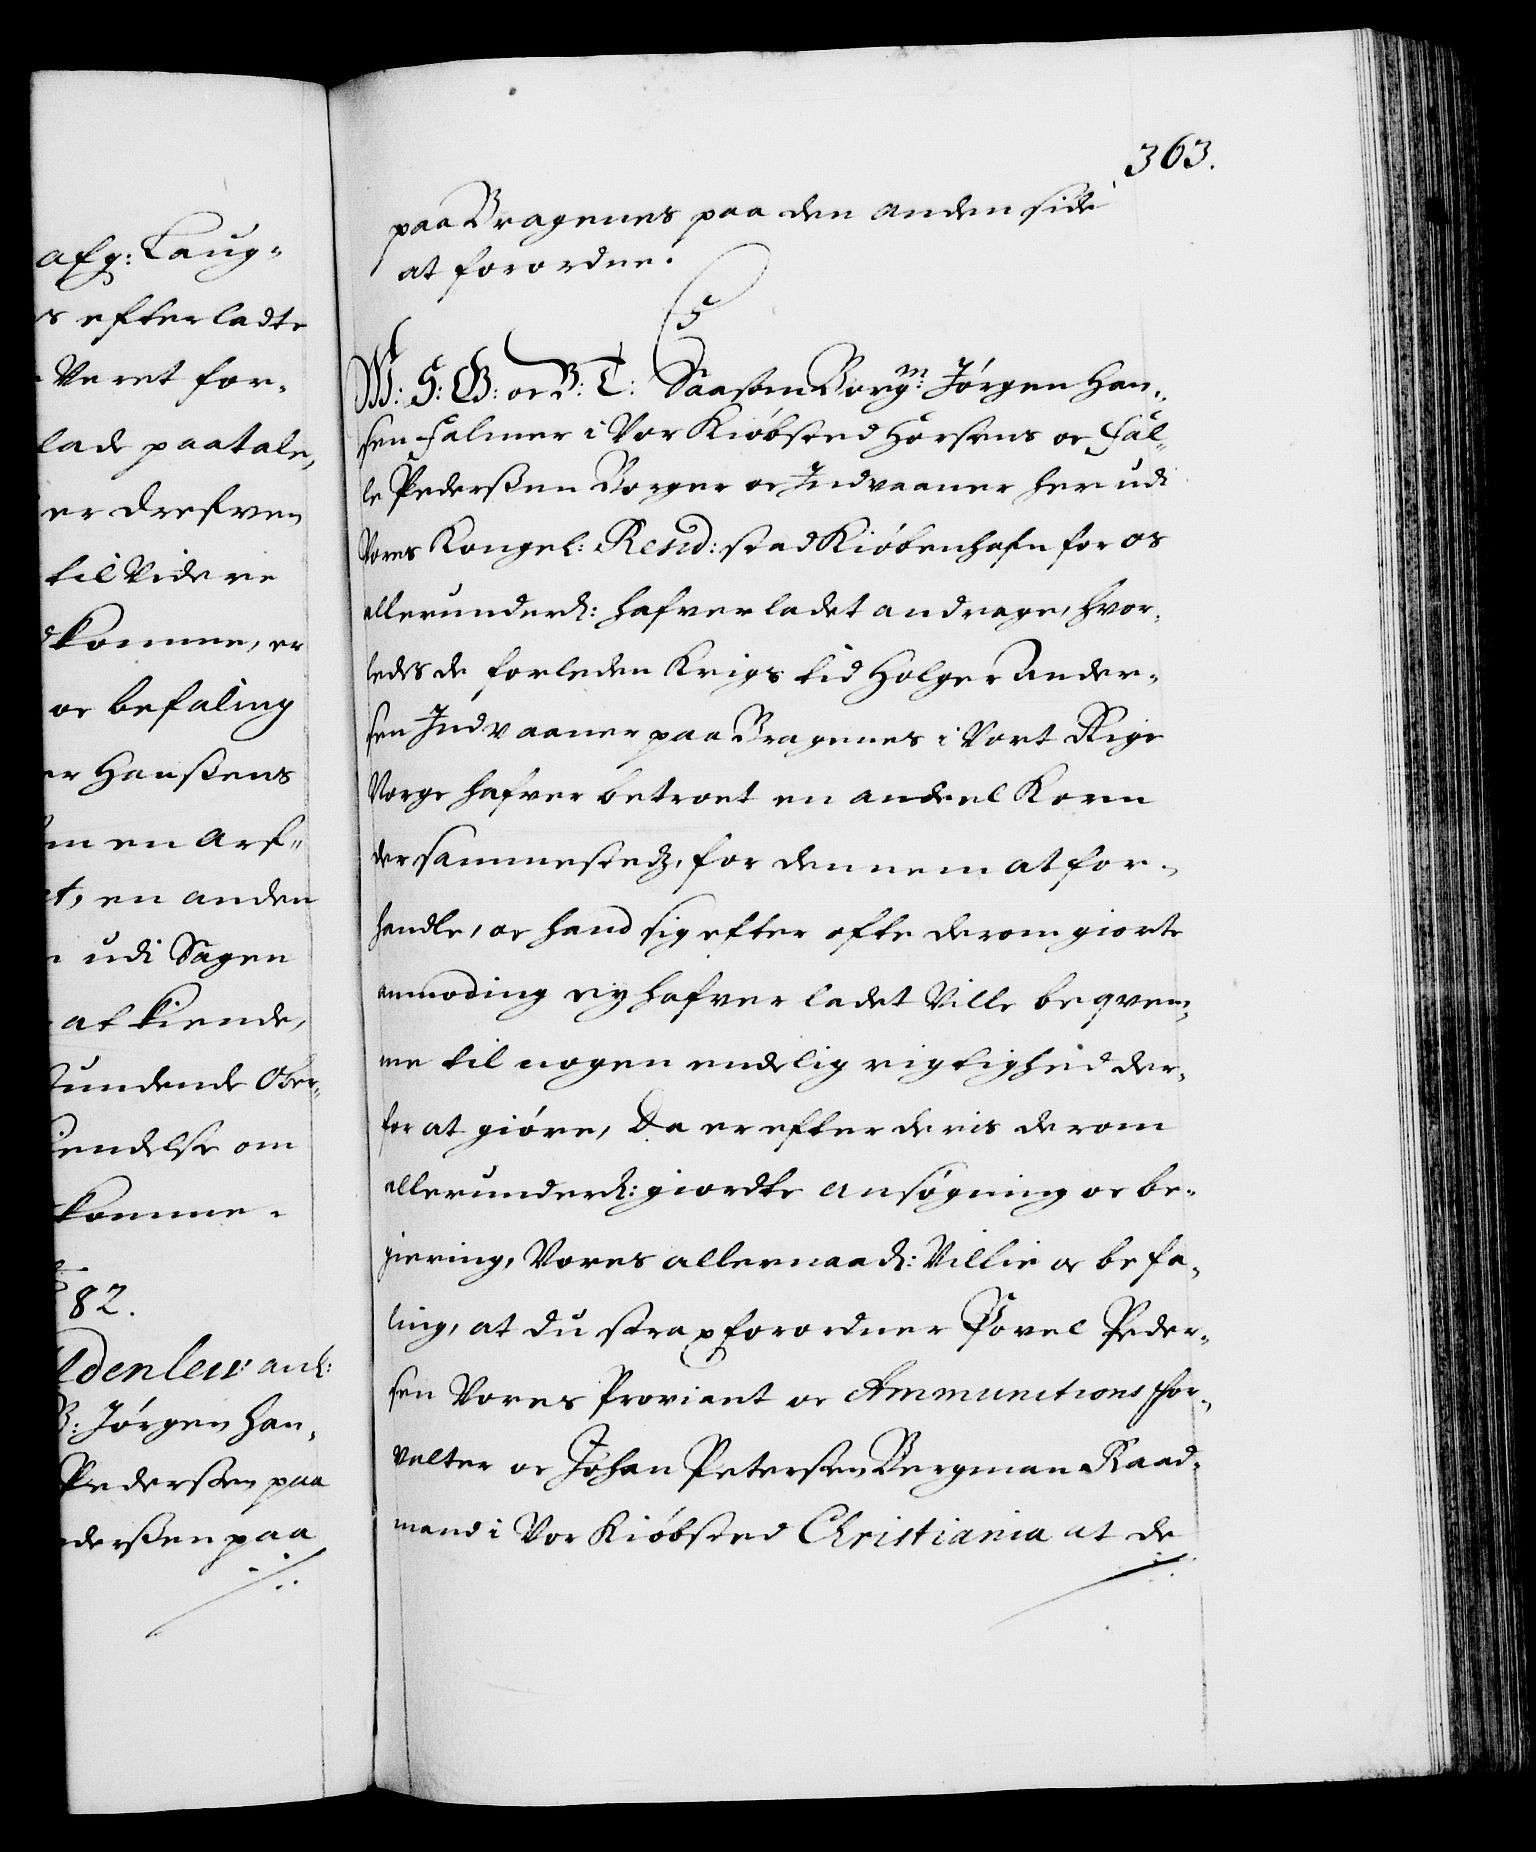 363.
paa Bragenes paa den anden side
at forordne.
C5
W: S: G: oc B: T: Saasom Borgm: Jørgen Han-
sen Falmer i Vor Kiøbsted Horsens oc Pal-
le Pederssen Borger oc Indvaaner her udi
Vores Kongel: Resid: stad Kiøbenhafn for os
allerunderd: hafver ladet andrage, hvor-
ledes de forleden Krigs tid Holger Ander-
sen Indvaaner paa Bragenes i Vort Rige
Norge hafver betroet en andeel Korn
dersammestedz, for dennem at for-
handle, oc hand sig efter ofte derom giorte
anmoding ey hafver ladet Ville beqvem-
me til nogen endelig rigtighed der-
for at giøre, Da er efter deris derom
allerunderd: giordte ansøgning oc be-
giering, Vores allernaad: Villie oc befa-
ling, at du strax forordner Povel Peder-
sen Vores Proviant oc Ammunitions for-
valter oc Johan Peterssen Bergman Raad-
mand i Vor Kiøbsted Christiania at de
afg: Laug-
s efterladte
Veret for-
lade paatale,
er drefven
til Videre
komme, er
oc befaling
er Hanssens
en Arf-
t, en anden
udi Sagen
at kiende,
undende Ober-
iendelse om
komme.
82.
ldenleu: anl:
B: Jørgen Han-
Pedersen paa
derssen paa